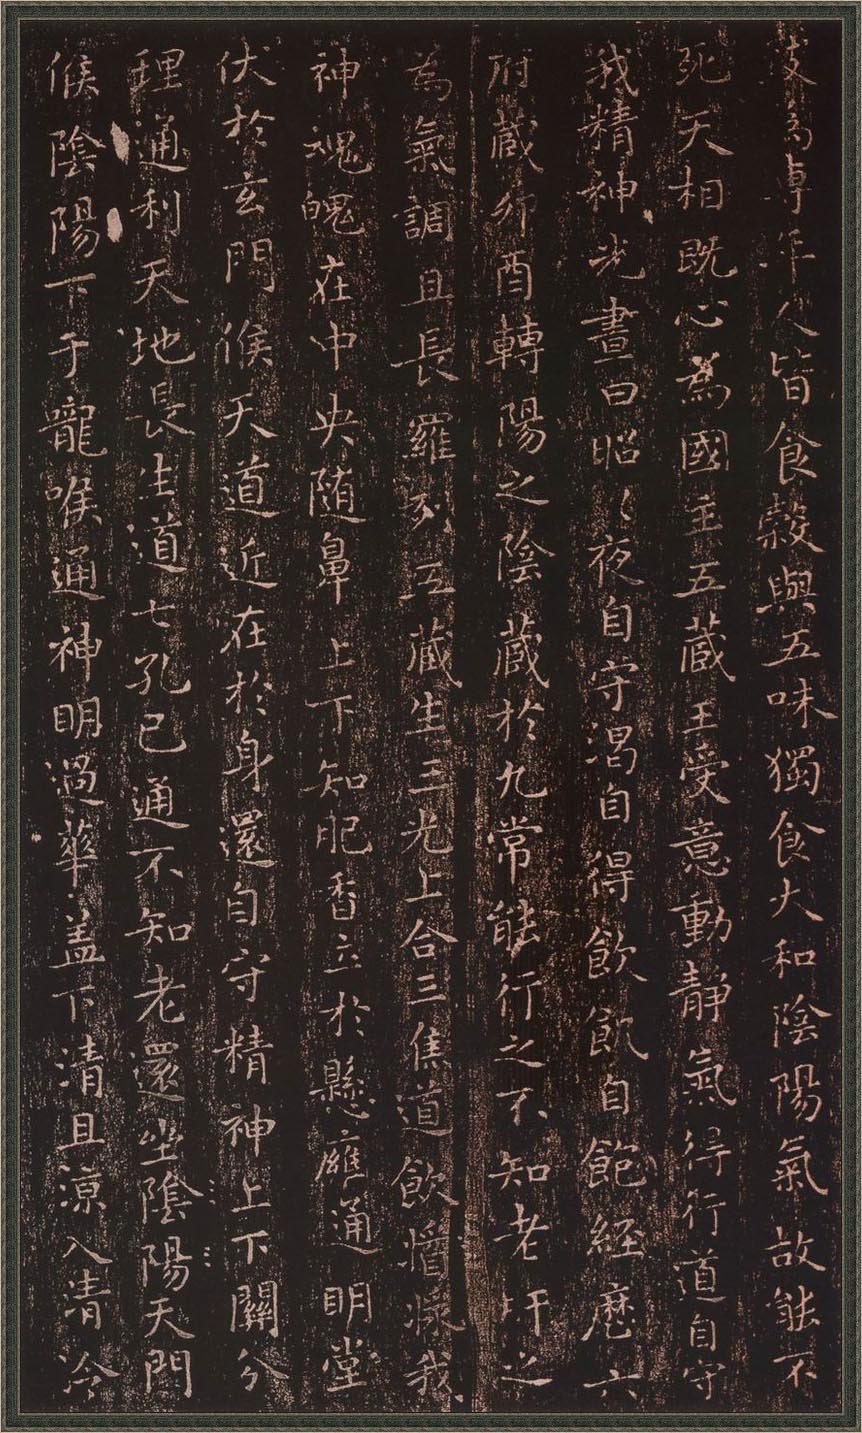 專年人皆食穀與五味獨食大和陰陽氣故能不
死天相既心為國主五藏王受意動靜氣得行道自守
我精神光晝日昭〻夜自守渴自得飲飢自飽經歷六
府藏卯酉轉陽之陰藏於九常能行之不知老肝之
為氣調且長羅列五藏生三光上合三焦道飲漿我
神魂魄在中央随鼻上下知肥香立於懸廱通明堂
伏於玄門候天道近在於身還自守精神上下關分
理通利天地長生道七孔已通不知老還坐陰陽天門
候陰陽下于嚨喉通神明過華盖下清且涼入清冷